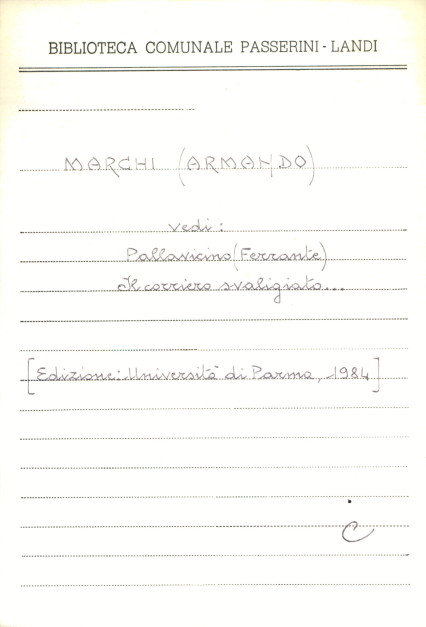 BIBLIOTECA COMUNALE PASSERINI - LANDI
MARCHI (ARMANDO)
vedi:
Pallavicino (Ferrante)
Il corriero svaligiato...
[Edizione: Università di Parma, 1984]
C